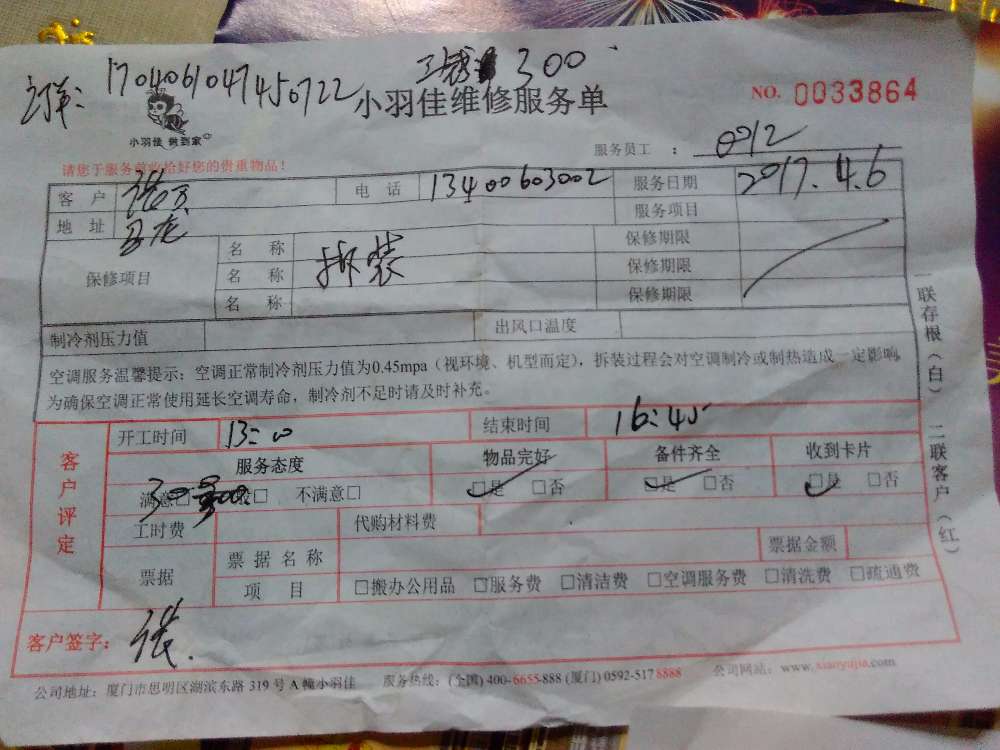 订单: 1704061047450722 工钱 300
小羽佳 做到家
小羽佳维修服务单
NO. 0033864
服务员工 : 0912
请您于服务前收拾好您的贵重物品!
客户 电话 13400603002 服务日期 2017.4.6
地址 服务项目
保修项目 名称 拆装 保修期限
名称 保修期限
名称 保修期限
制冷剂压力值 出风口温度
空调服务温馨提示:空调正常制冷剂压力值为0.45mpa(视环境、机型而定),拆装过程会对空调制冷或制热造成一定影响,
为确保空调正常使用延长空调寿命,制冷剂不足时请及时补充。
客户评定
开工时间 13:00 结束时间 16:45
服务态度 物品完好 备件齐全 收到卡片
满意□ 般□ 不满意□ □是 □否 □是 □否 □是 □否
工时费 代购材料费
票据 票据名称 票据金额
项目 □搬办公用品 □服务费 □清洁费 □空调服务费 □清洗费 □疏通费
客户签字: 张
一联存根(白) 二联客户(红)
公司地址:厦门市思明区湖滨东路 319 号 A 幢小羽佳 服务热线:(全国) 400-6655-888 (厦门) 0592-517 8888 公司网站:www.xiaoyujia.com